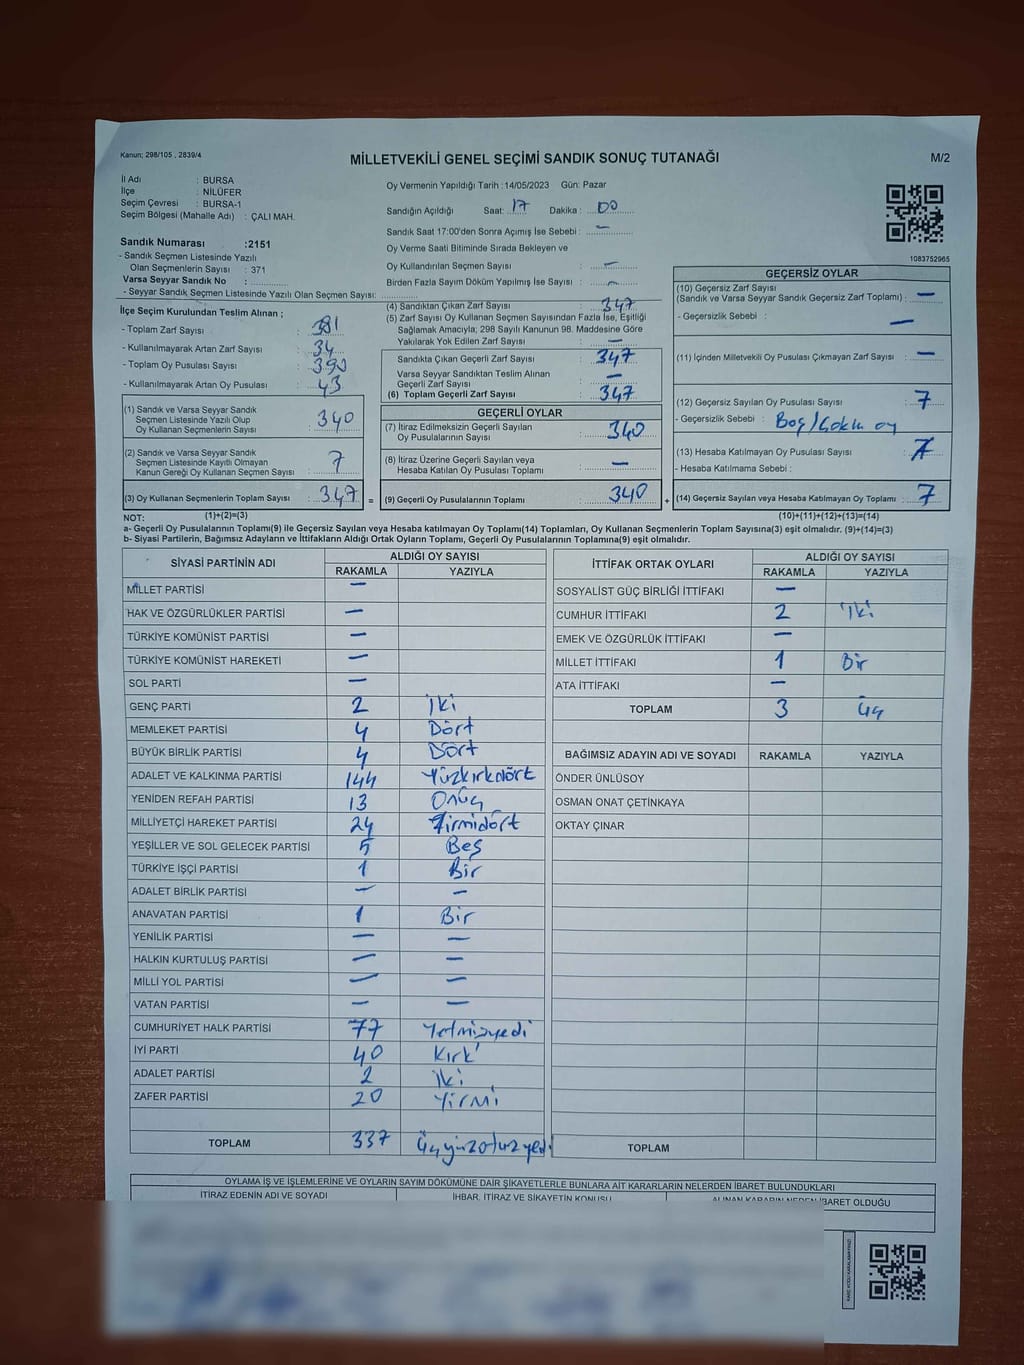 Kanun; 298/105 , 2839/4
MİLLETVEKİLİ GENEL SEÇİMİ SANDIK SONUÇ TUTANAĞI
M/2
İl Adı : BURSA
İlçe : NİLÜFER
Seçim Çevresi : BURSA-1
Seçim Bölgesi (Mahalle Adı) : ÇALI MAH.
Sandık Numarası :2151
- Sandık Seçmen Listesinde Yazılı
Olan Seçmenlerin Sayısı : 371
Varsa Seyyar Sandık No :
- Seyyar Sandık Seçmen Listesinde Yazılı Olan Seçmen Sayısı:
Oy Vermenin Yapıldığı Tarih :14/05/2023 Gün: Pazar
Sandığın Açıldığı Saat: 17 Dakika : 00
Sandık Saat 17:00'den Sonra Açımış İse Sebebi : —
Oy Verme Saati Bitiminde Sırada Bekleyen ve
Oy Kullandırılan Seçmen Sayısı : —
Birden Fazla Sayım Döküm Yapılmış İse Sayısı : —
1083752965
İlçe Seçim Kurulundan Teslim Alınan ;
- Toplam Zarf Sayısı : 381
- Kullanılmayarak Artan Zarf Sayısı : 34
- Toplam Oy Pusulası Sayısı : 390
- Kullanılmayarak Artan Oy Pusulası : 43
(1) Sandık ve Varsa Seyyar Sandık
Seçmen Listesinde Yazılı Olup
Oy Kullanan Seçmenlerin Sayısı : 340
(2) Sandık ve Varsa Seyyar Sandık
Seçmen Listesinde Kayıtlı Olmayan
Kanun Gereği Oy Kullanan Seçmen Sayısı : 7
(3) Oy Kullanan Seçmenlerin Toplam Sayısı : 347 =
(4) Sandıktan Çıkan Zarf Sayısı : 347
(5) Zarf Sayısı Oy Kullanan Seçmen Sayısından Fazla İse, Eşitliği
Sağlamak Amacıyla; 298 Sayılı Kanunun 98. Maddesine Göre
Yakılarak Yok Edilen Zarf Sayısı : —
Sandıkta Çıkan Geçerli Zarf Sayısı : 347
Varsa Seyyar Sandıktan Teslim Alınan
Geçerli Zarf Sayısı : —
(6) Toplam Geçerli Zarf Sayısı : 347
GEÇERLİ OYLAR
(7) İtiraz Edilmeksizin Geçerli Sayılan
Oy Pusulalarının Sayısı : 340
(8) İtiraz Üzerine Geçerli Sayılan veya
Hesaba Katılan Oy Pusulası Toplamı : —
(9) Geçerli Oy Pusulalarının Toplamı : 340 +
GEÇERSİZ OYLAR
(10) Geçersiz Zarf Sayısı
(Sandık ve Varsa Seyyar Sandık Geçersiz Zarf Toplamı) : —
- Geçersizlik Sebebi : —
(11) İçinden Milletvekili Oy Pusulası Çıkmayan Zarf Sayısı : —
(12) Geçersiz Sayılan Oy Pusulası Sayısı : 7
- Geçersizlik Sebebi : Boş/ oy
(13) Hesaba Katılmayan Oy Pusulası Sayısı : 7
- Hesaba Katılmama Sebebi :
(14) Geçersiz Sayılan veya Hesaba Katılmayan Oy Toplamı : 7
NOT: (1)+(2)=(3) (10)+(11)+(12)+(13)=(14)
a- Geçerli Oy Pusulalarının Toplamı(9) ile Geçersiz Sayılan veya Hesaba katılmayan Oy Toplamı(14) Toplamları, Oy Kullanan Seçmenlerin Toplam Sayısına(3) eşit olmalıdır. (9)+(14)=(3)
b- Siyasi Partilerin, Bağımsız Adayların ve İttifakların Aldığı Ortak Oyların Toplamı, Geçerli Oy Pusulalarının Toplamına(9) eşit olmalıdır.
SİYASİ PARTİNİN ADI ALDIĞI OY SAYISI
RAKAMLA YAZIYLA
MİLLET PARTİSİ —
HAK VE ÖZGÜRLÜKLER PARTİSİ —
TÜRKİYE KOMÜNİST PARTİSİ —
TÜRKİYE KOMÜNİST HAREKETİ —
SOL PARTİ —
GENÇ PARTİ 2 İki
MEMLEKET PARTİSİ 4 Dört
BÜYÜK BİRLİK PARTİSİ 4 Dört
ADALET VE KALKINMA PARTİSİ 144 Yüzkırkdört
YENİDEN REFAH PARTİSİ 13 Onüç
MİLLİYETÇİ HAREKET PARTİSİ 24 Yirmidört
YEŞİLLER VE SOL GELECEK PARTİSİ 5 Beş
TÜRKİYE İŞÇİ PARTİSİ 1 Bir
ADALET BİRLİK PARTİSİ — —
ANAVATAN PARTİSİ 1 Bir
YENİLİK PARTİSİ — —
HALKIN KURTULUŞ PARTİSİ — —
MİLLİ YOL PARTİSİ — —
VATAN PARTİSİ — —
CUMHURİYET HALK PARTİSİ 77 Yetmişyedi
İYİ PARTİ 40 Kırk
ADALET PARTİSİ 2 iki
ZAFER PARTİSİ 20 Yirmi
TOPLAM 337 Üçyüzotuzyedi
İTTİFAK ORTAK OYLARI ALDIĞI OY SAYISI
RAKAMLA YAZIYLA
SOSYALİST GÜÇ BİRLİĞİ İTTİFAKI —
CUMHUR İTTİFAKI 2 İki
EMEK VE ÖZGÜRLÜK İTTİFAKI —
MİLLET İTTİFAKI 1 Bir
ATA İTTİFAKI —
TOPLAM 3 Üç
BAĞIMSIZ ADAYIN ADI VE SOYADI RAKAMLA YAZIYLA
ÖNDER ÜNLÜSOY
OSMAN ONAT ÇETİNKAYA
OKTAY ÇINAR
TOPLAM
OYLAMA İŞ VE İŞLEMLERİNE VE OYLARIN SAYIM DÖKÜMÜNE DAİR ŞİKAYETLERLE BUNLARA AİT KARARLARIN NELERDEN İBARET BULUNDUKLARI
İTİRAZ EDENİN ADI VE SOYADI İHBAR, İTİRAZ VE ŞİKAYETİN KONUSU ALINAN KARARIN NEDEN İBARET OLDUĞU